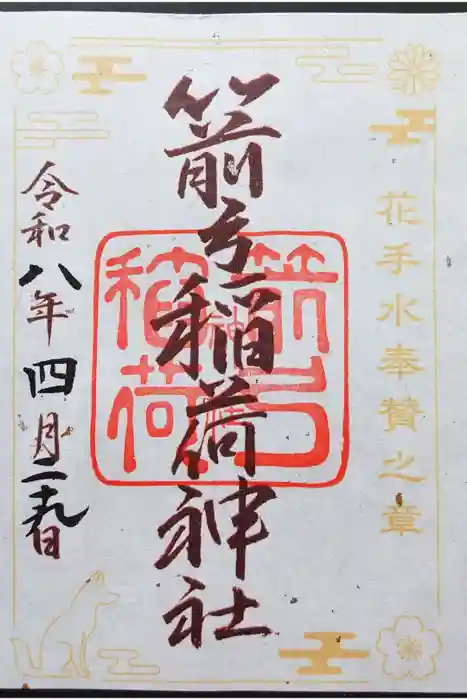 花手水奉賛之章
箭弓稲荷神社
箭弓稲荷神社
令和八年四月二十九日